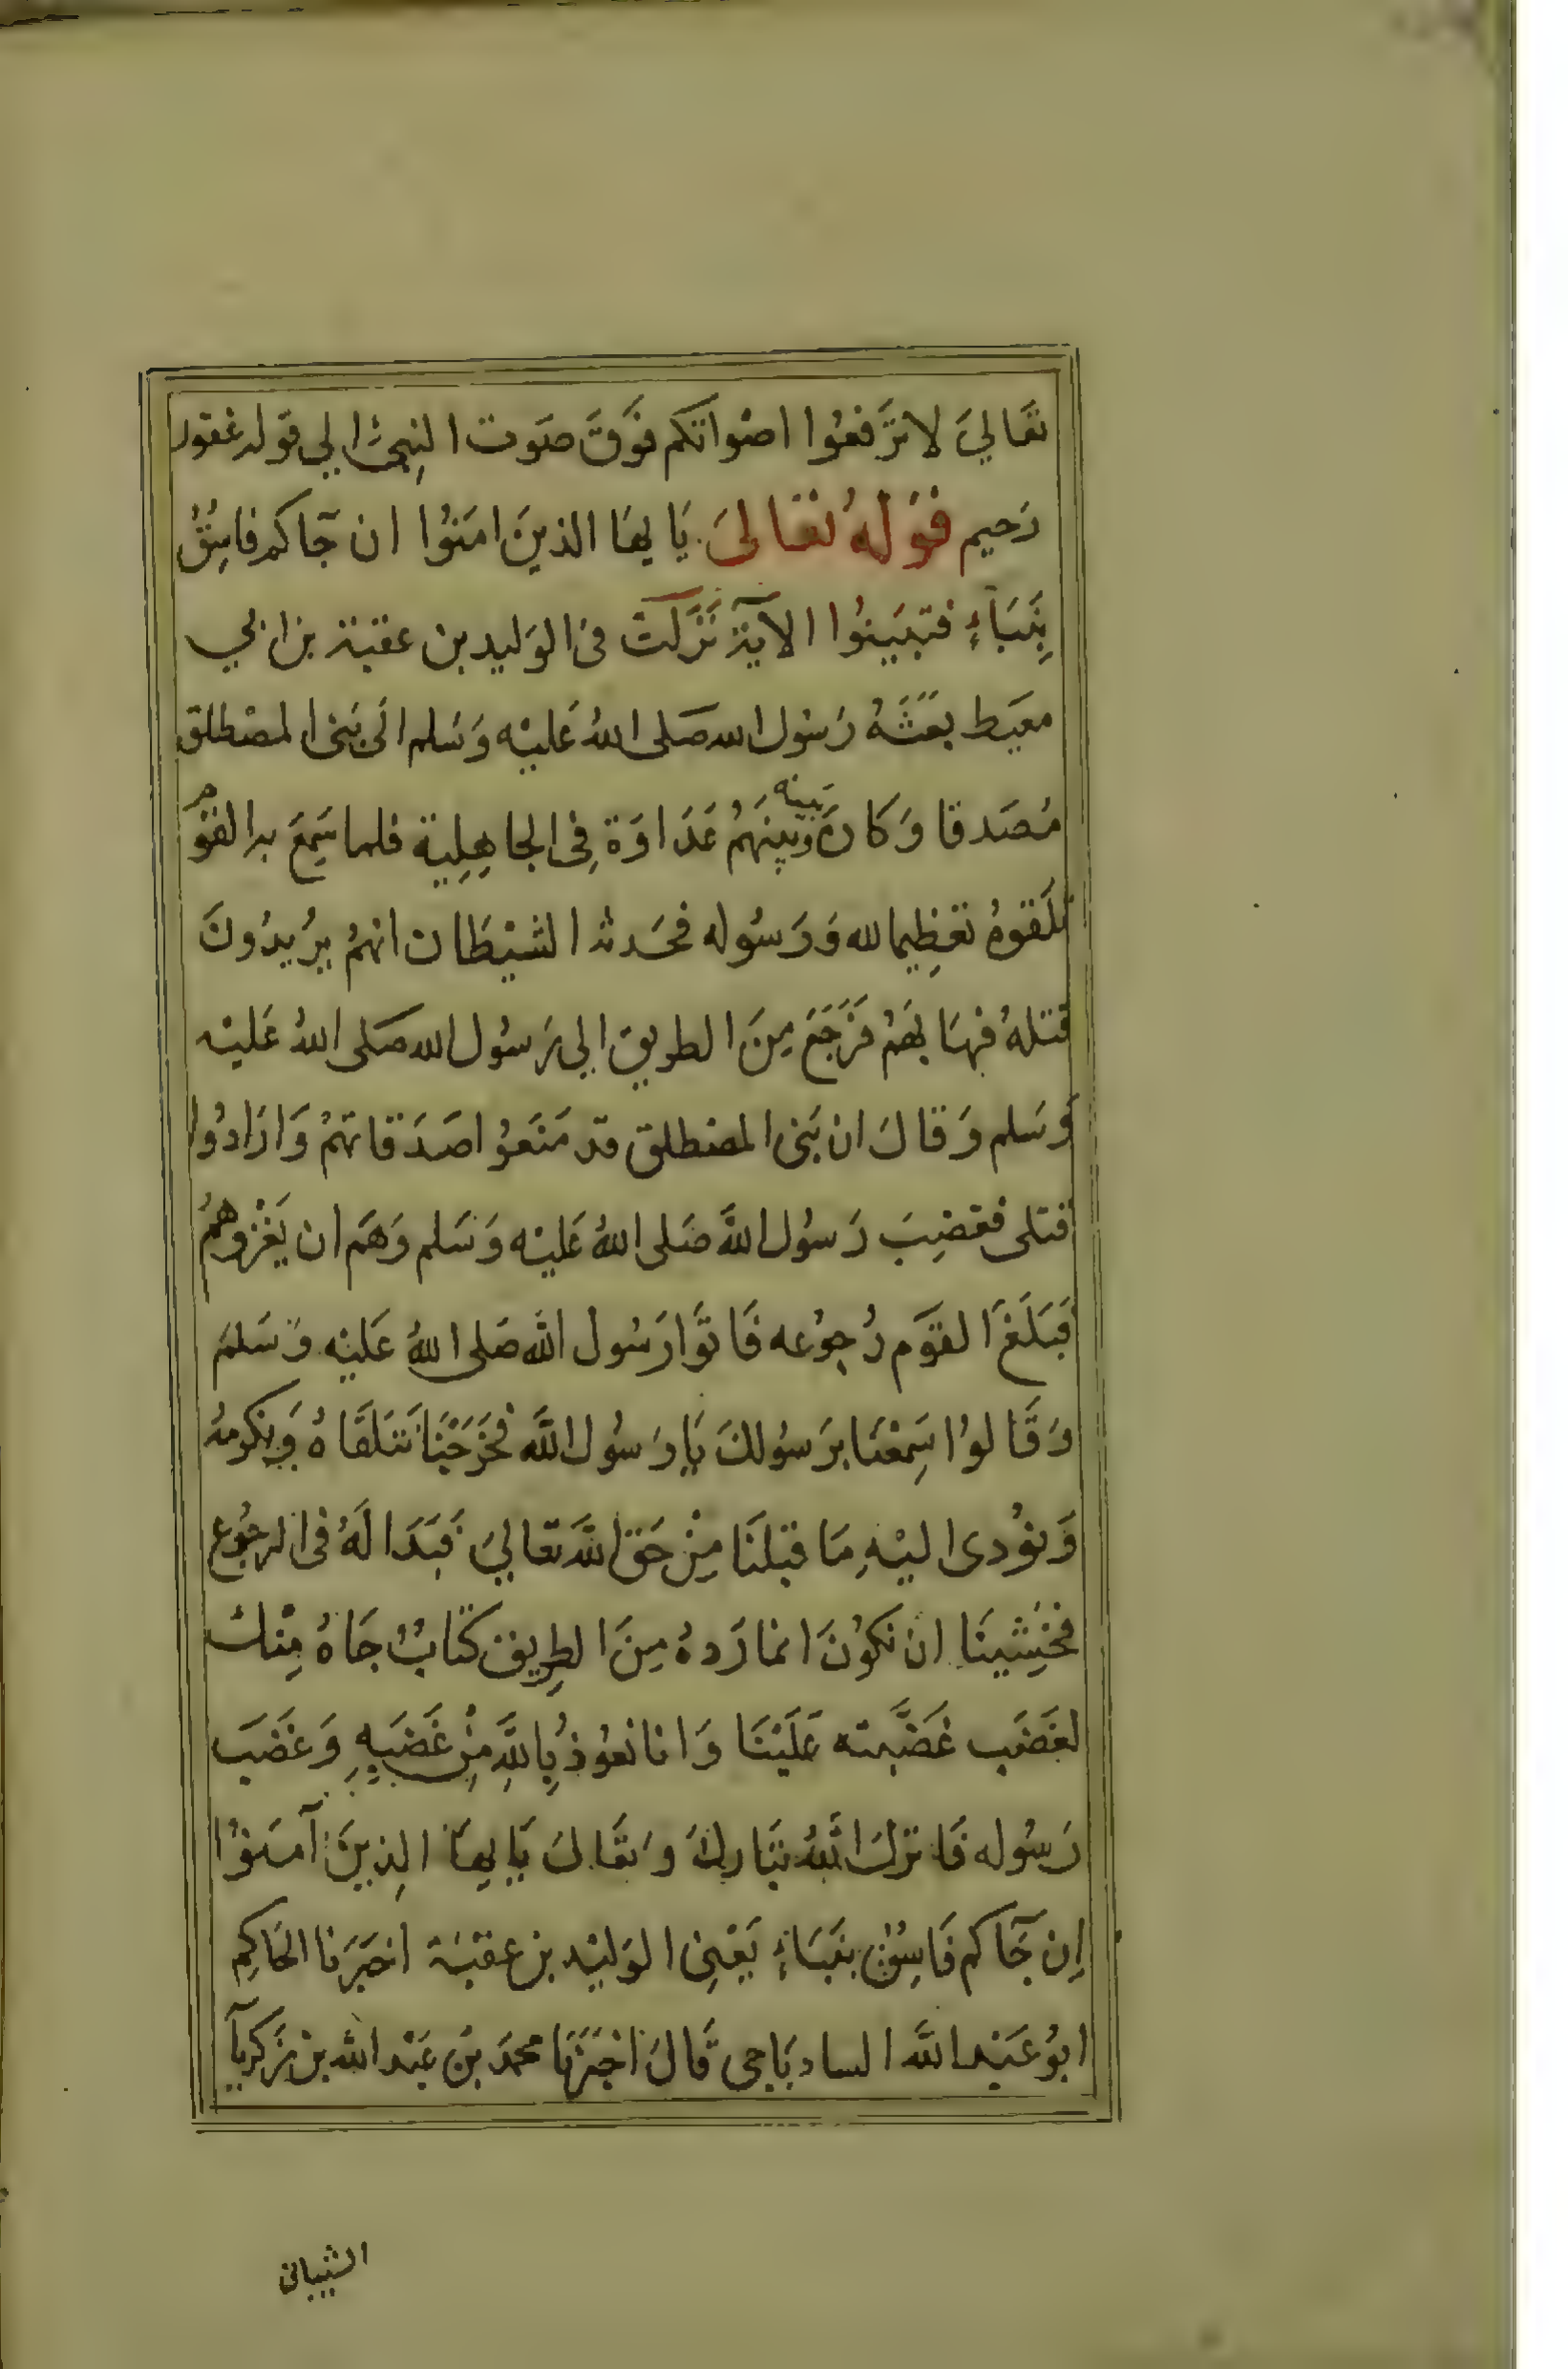 تعَاليَ لا تَرفعُوا اصْواتكم فوَقَ صَوت النِبيّ الي قوله غفور
رَحيم قوَلهُ تعَالىَ يَا يهَا الذينَ امَنوُا ان جَآكم فاسِقُ
بِنَبَاءٍ فتبَيَينوُا الآية نَزَلَتَ فى الوَليد بن عقبة بن ابي
معيَط بعَثَهُ رَسُول الله صَلى اللهُ عَليْه وَسَلم الَى بَنى المصْطلق
مُصَدقا وَكانَ بَينه وَبيِنَهمُ عَدَاوَة فِى الجاهِلِية فلما سَمِعَ به القوَم
تلَقوهُ تعَظِيما لله وَرَسُوله فحَدثه الشيْطَان انهمُ يرُيدُونَ
قتلهُ فهَابهَمُ فَرَجَعَ مِنَ الطريق الي رَسُول الله صَلى اللهُ عَليْه
وَسَلم وَقالَ ان بَنى المصْطلق قد مَنَعوُا صَدَقاتهمُ وَارَادُوا
قتلى فغضِبَ رَسُول اللهَ صَلى اللهُ عَليْه وَسَلم وَهَم ان يَغْزوهمُ
فَبَلَغَ القوَم رُجوُعه فَاتوَا رَسُول الله صَلى اللهُ عَليْه وَسَلمَ
وَقَالوُا سَمِعْنَا برَسوُلكَ يَا رَسُول اللَّه فخَرَجْنَا نَتَلَقَاهُ وَنكرمهُ
وَنوُدى اليْهِ مَا قبْلَنَا مِنْ حَق اللهَ تعَاليَ فَبَدَا لَهُ فى الرجُوع
فخَشِينَا ان نكوُنَ انما رَدهُ مِنَ الطِريق كتَابُ جَاهُ مِنْك
لغَضَب غَضَبته عَلَيْنَا وَانا نعوُذ بِاللَّهِ مِنْ غَضَبِهِ وَغضَب
رَسُوله فَانزلَ اللهُ تبَاركَ وَتعَالَ يَا يهَا الِذينَ آمَنوُا
اِن جَآكم فَاسِقُ بنَبَاءٍ يَعْنِى الوَليْد بن عقبَة اخبَرَنا الحَاكِم
ابوُ عَبْد اللهَ الساد يَاجى قَالَ اخبَرَنَا محمدَ بنَ عَبْد الله بن زَكريآ
الشيبانى